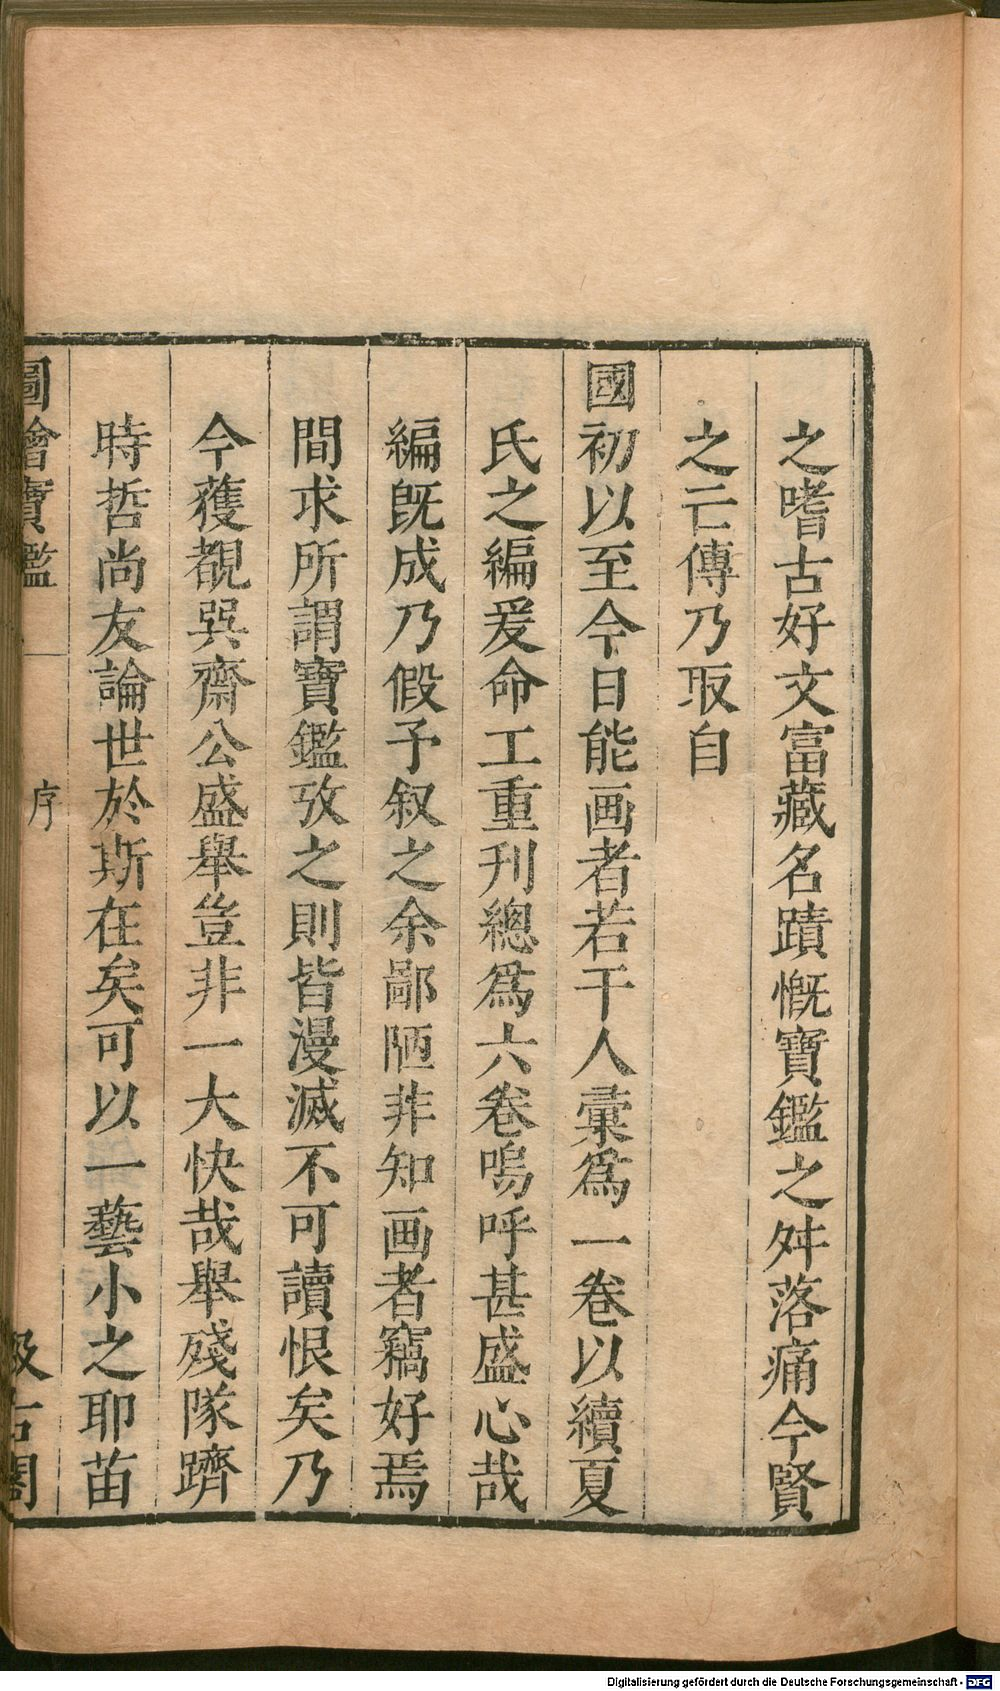 之嗜古好文富藏名蹟慨寶鑑之舛落痛今賢
之亡傳乃取自
國初以至今日能画者若干人彙爲一卷以續夏
氏之編爰命工重刊總爲六卷嗚呼甚盛心哉
編旣成乃假予叙之余鄙陋非知画者竊好焉
間求所謂寶鑑攷之則皆漫滅不可讀恨矣乃
今獲覩吳齋公盛舉豈非一大快哉舉殘隊躋
時哲尚友論世於斯在矣可以一藝小之耶苗
圖繪寶鑑 序 汲古閣
Digitalisierung gefördert durch die Deutsche Forschungsgemeinschaft - DFG